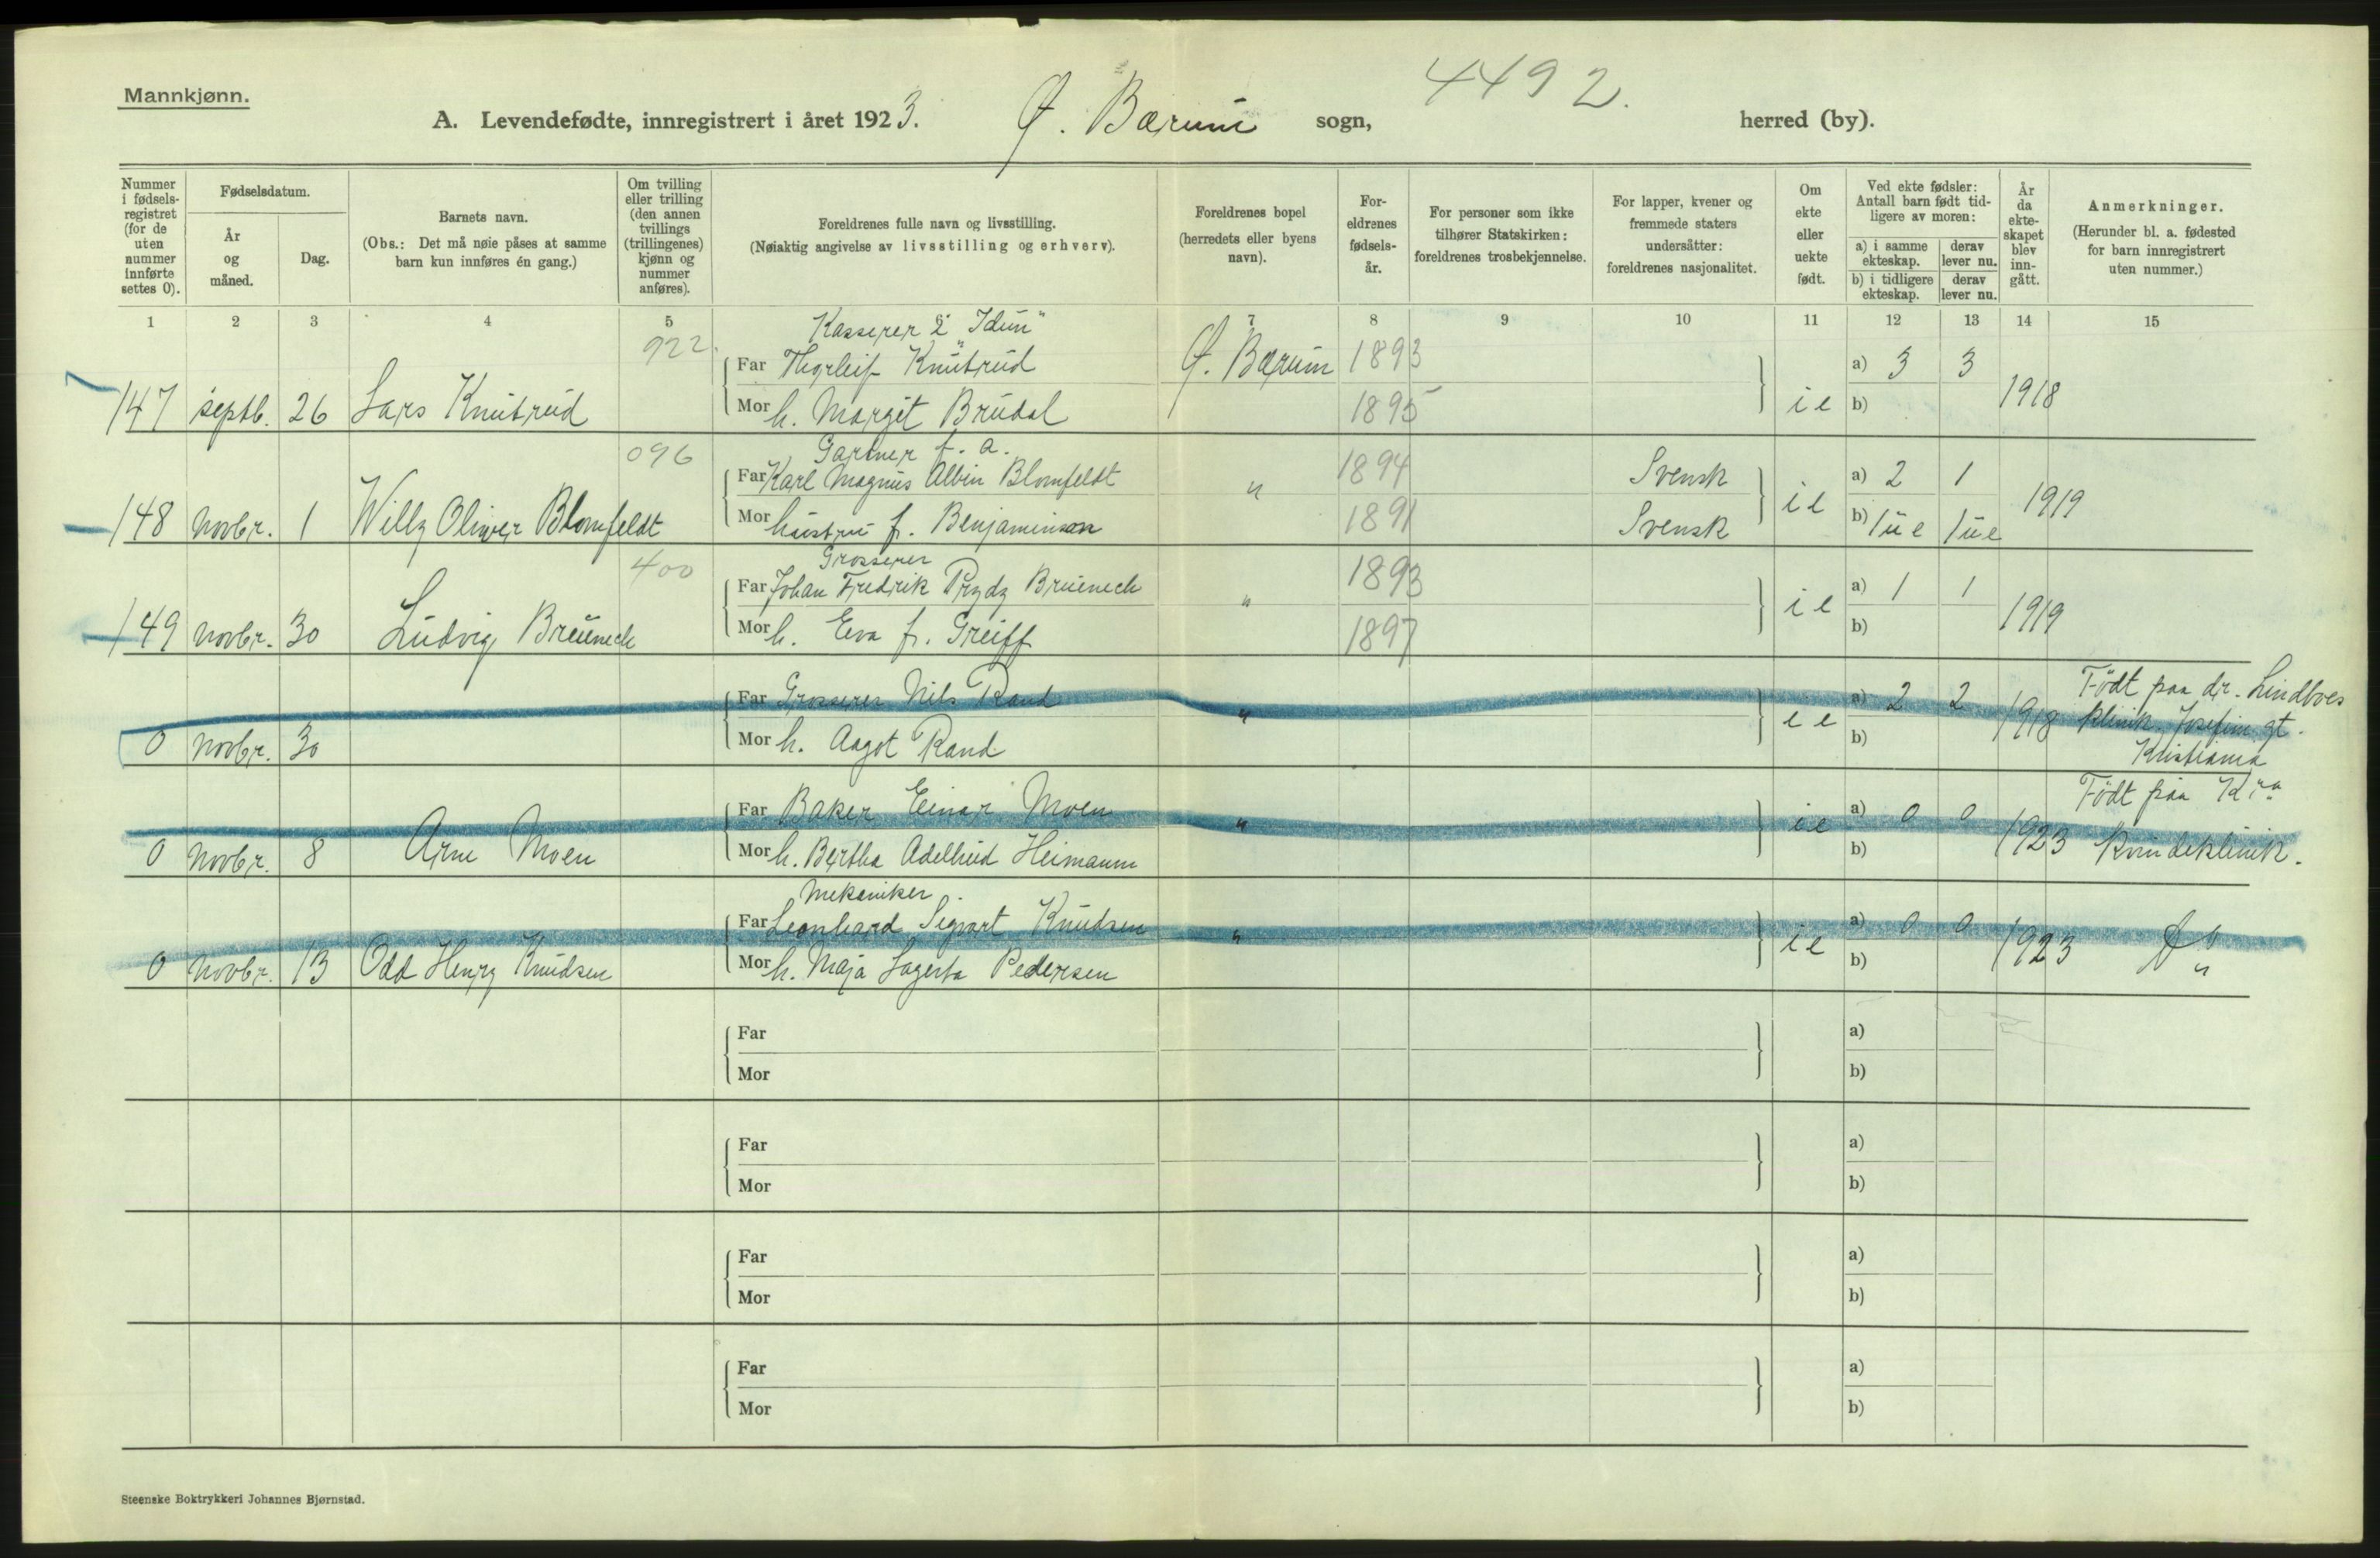 4492.
Mannkjønn.
A. Levendefødte, innregistrert i året 1923. Ø. Bærum sogn, herred (by).
Nummer i fødselsregistret (for de uten nummer innførte settes 0).
Fødselsdatum.
År og måned.
Dag.
Barnets navn.
(Obs.: Det må nøie påses at samme barn kun innføres én gang.)
Om tvilling eller trilling (den annen tvillings (trillingenes) kjønn og nummer anføres).
Foreldrenes fulle navn og livsstilling.
(Nøiaktig angivelse av livsstilling og erhverv).
Foreldrenes bopel (herredets eller byens navn).
Foreldrenes fødselsår.
For personer som ikke tilhører Statskirken: foreldrenes trosbekjennelse.
For lapper, kvener og fremmede staters undersåtter: foreldrenes nasjonalitet.
Om ekte eller uekte født.
Ved ekte fødsler: Antall barn født tidligere av moren:
a) i samme ekteskap. derav lever nu.
b) i tidligere ekteskap. derav lever nu.
År da ekteskapet blev inngått.
Anmerkninger.
(Herunder bl. a. fødested for barn innregistrert uten nummer.)
1 2 3 4 5 6 7 8 9 10 11 12 13 14 15
922. Kasserer i "Idun"
Far Thorleif Knutrud Ø. Bærum 1893 a) 3 3
147 septb. 26 Lars Knutrud Mor h. Margit Brudal 1895 ie b) 1918
096 Gartner f. a.
Far Karl Magnus Albin Blomfeldt " 1894 Svensk a) 2 1
148 Novbr. 1 Willy Oliver Blomfeldt Mor hustru f. Benjaminson 1891 Svensk ie b) 1ue 1ue 1919
400 Grosserer
Far Johan Fredrik Prydz Bruenech " 1893 a) 1 1
149 Novbr. 30 Ludvig Bruenech Mor h. Eva f. Greiff 1897 ie b) 1919
Far Grosserer Nils Rand " a) 2 2 Født paa dr. Lindboes
0 Novbr. 30 Mor h. Aagot Rand ee b) 1918 klinik, Josefinegt.
Kristiania
Far Baker Einar Moen " ie a) 0 0 Født paa Kra
0 Novbr. 8 Arne Moen Mor h. Bertha Adelheid Heimann b) 1923 kvindeklinik.
Mekaniker
Far Leonhard Sigvart Knudsen " a) 0 0
0 Novbr. 13 Odd Henry Knudsen Mor h. Maja Lagerta Pedersen ie b) 1923 Do "
Far a)
Mor b)
Far a)
Mor b)
Far a)
Mor b)
Far a)
Mor b)
Steenske Boktrykkeri Johannes Bjørnstad.